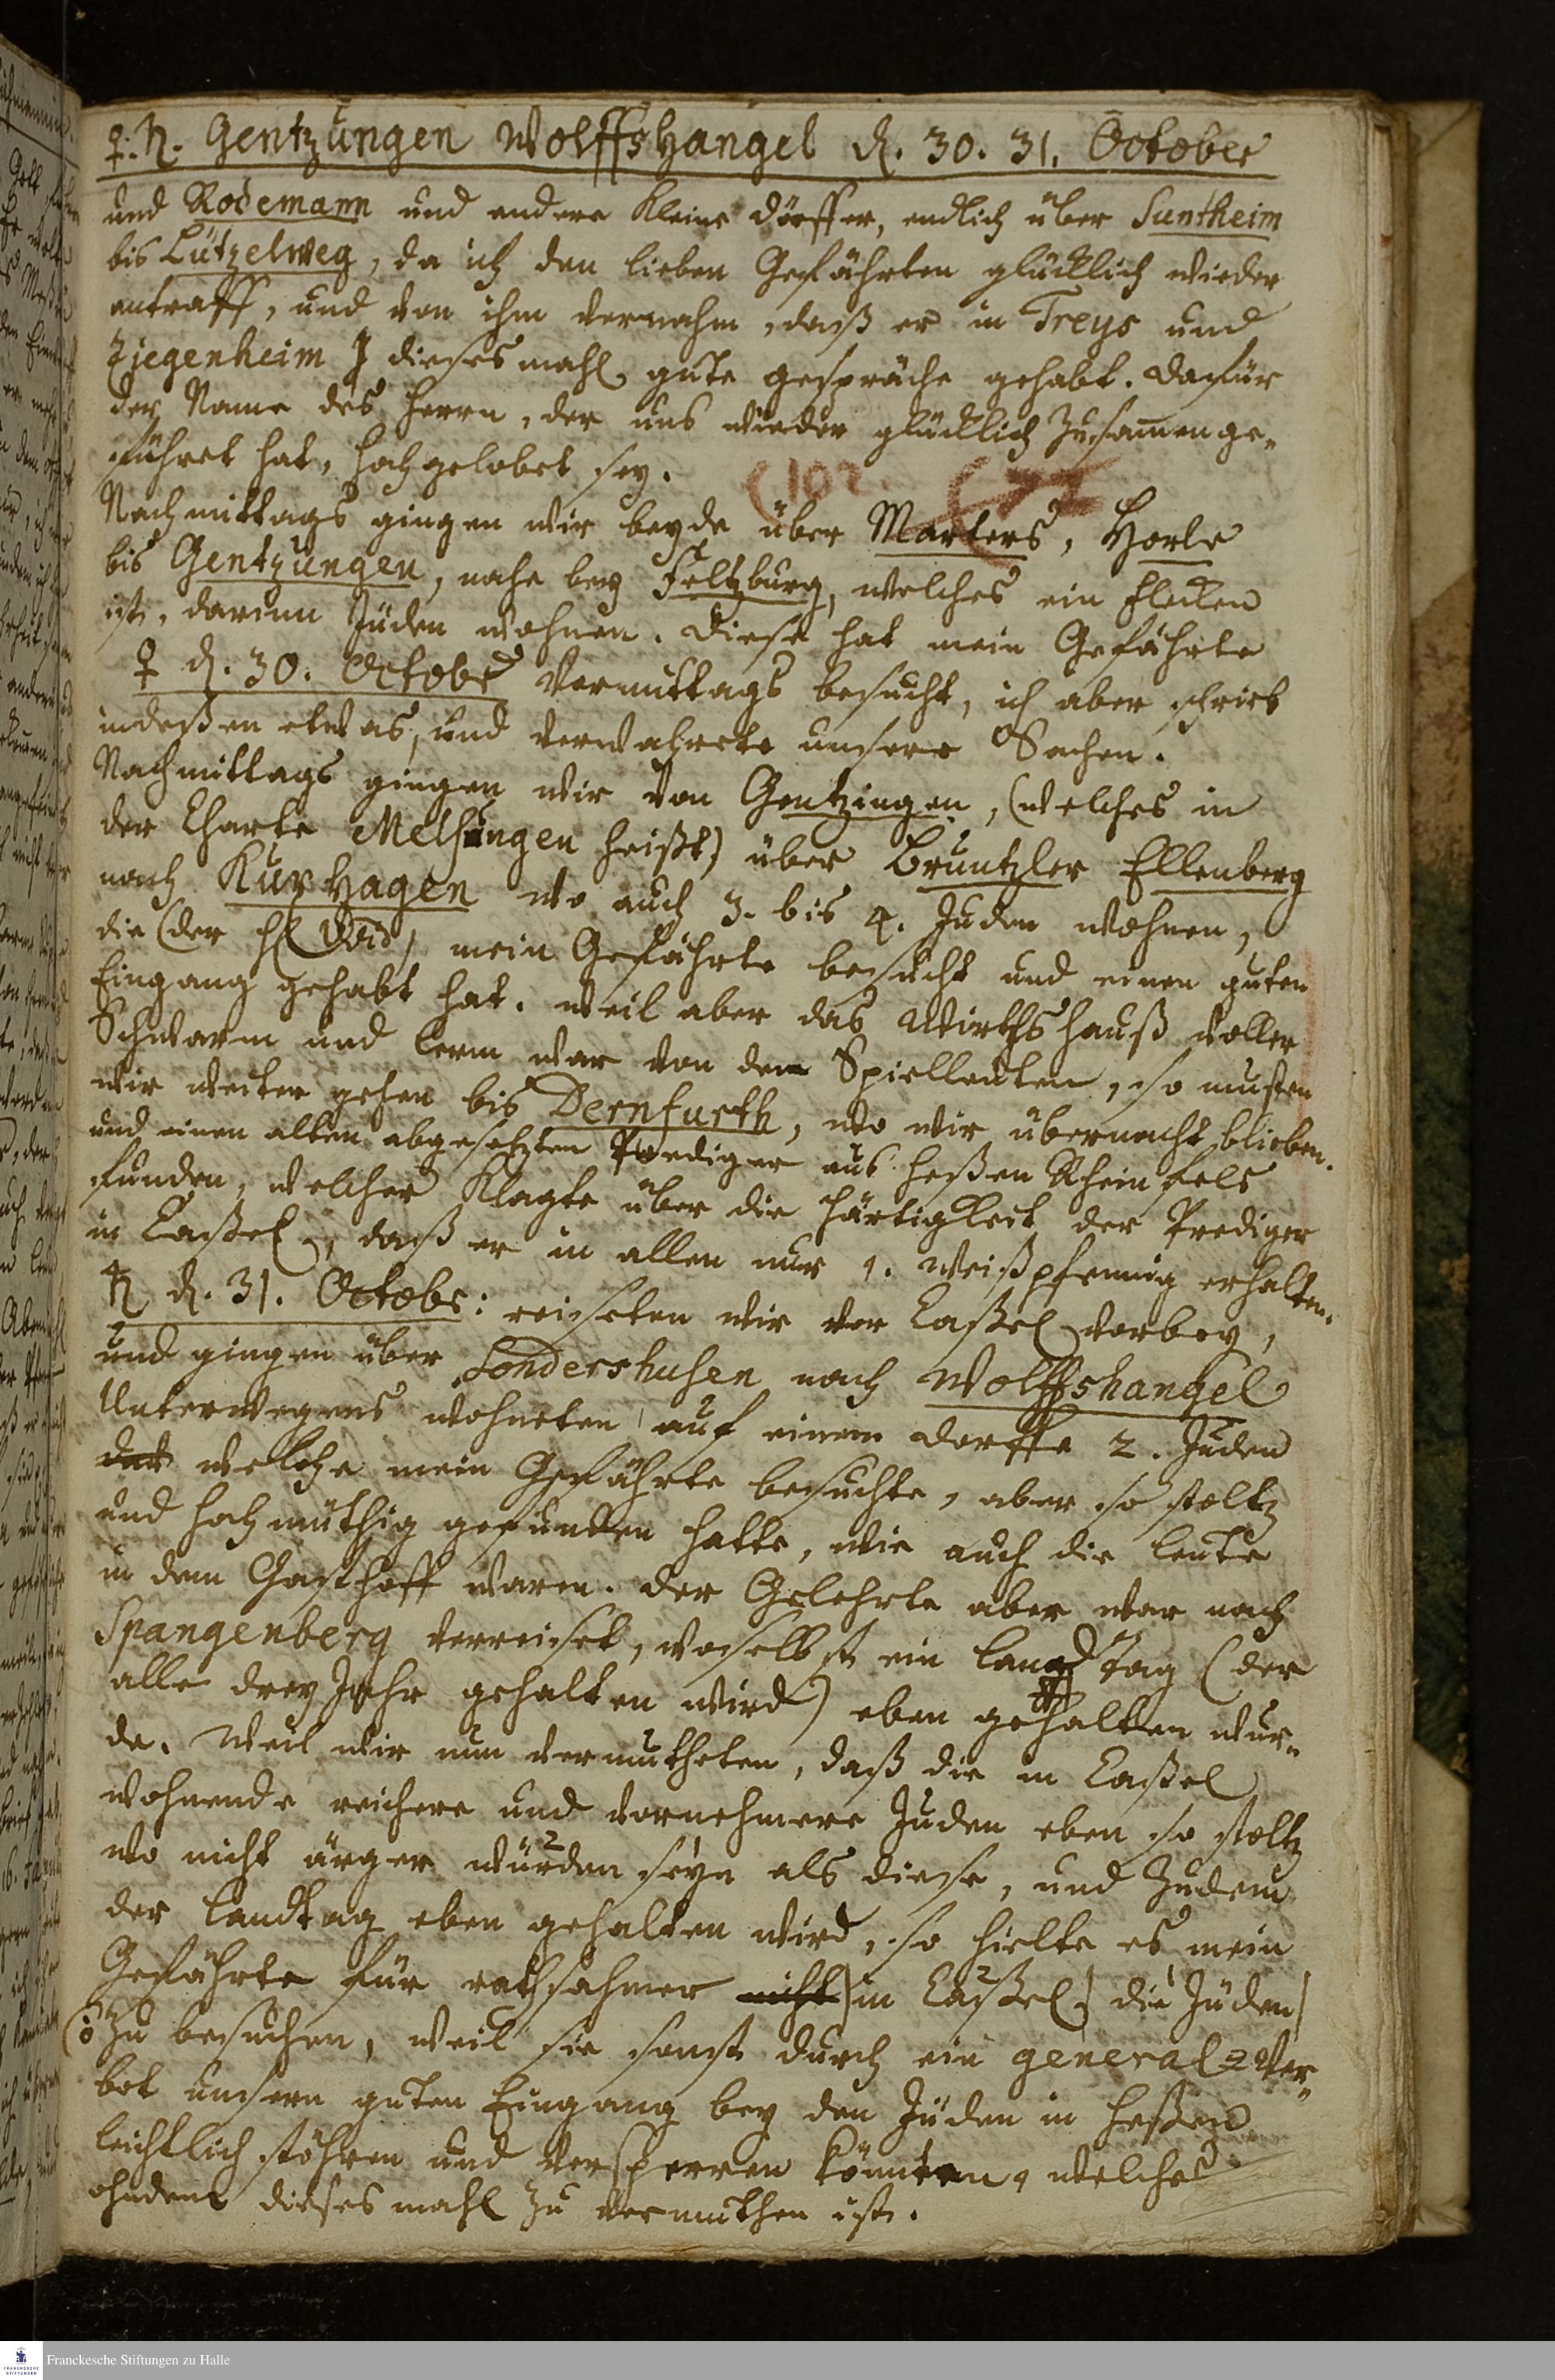 ♀. ♄. Gentzungen Wolffshangel d. 30. 31. October
und Rodemann und andere kleine Dörffer, endlich über Suntheim
bis Lützelweg, da ich den lieben Gefährten glücklich wieder
antraff, und von ihm vernahm, daß er in Treys und
Ziegenheim dieses mahl gute gespräche gehabt. Dafür
der Name des Herrn, der uns wieder glücklich zusam̄enge-
führet hat, hochgelobet sey.
(102.
Nachmittags gingen wir beyde über Marters, Horle
bis Gentzungen, nahe bey Feltzburg, welches ein Flecken
ist, darinn Juden wohnen. Diese hat mein Gefährte
♀ d. 30. Octobr Vormittags besucht, ich aber schrieb
indeßen etwas, und verwahrete unsere Sachen.
Nachmittags gingen wir von Gentzingen, (welches in
der Charte Melsungen heißt) über Bruntzler Ellenberg
nach Kurhagen wo auch 3. bis 4. Juden wohnen,
die (der H. Wid) mein Gefährte besucht und einen guten
Eingang gehabt hat. Weil aber das Wirthshauß voller
Schwarm und lerm war von den Spielleuten, so musten
wir weiter gehen bis Dernfurth, wo wir übernacht blieben.
und einen alten abgesetzten Prediger aus Heßen Rheinfels
funden, welcher klagte über die Härtigkeit der Prediger
in Caßel, daß er in allen nur 1. Weißpfennig erhalten.
♄ d. 31. Octobr: reiseten wir vor Caßel vorbey,
und gingen über Sondershusen nach Wolffshangel
Unterwegens wohneten auf einem Dorffe 2. Juden
welche mein Gefährte besuchte, aber so stoltz
und hochmüthig gefunden hatte, wie auch die Leute
in dem Gasthoff waren. Der Gelehrte aber war nach
Spangenberg verreiset, woselbst ein Land Tag (der
alle drey Jahr gehalten wird) eben gehalten wur-
de. Weil wir nun vermutheten, daß die in Caßel
wohnende reichere und vornehmere Juden eben so stoltz
wo nicht ärger würden seyn als diese, und zudem
der Landtag eben gehalten wird, so hielte es mein
Gefährte für rathsahmer nicht in Caßel die Juden
zu besuchen, weil sie sonst durch ein general-Ver-
bot unsern guten Eingang bey den Juden in Heßen
leichtlich stöhren und versperren könnten, welches
ohndem dieses mahl zu vermuthen ist.
Franckesche Stiftungen zu Halle